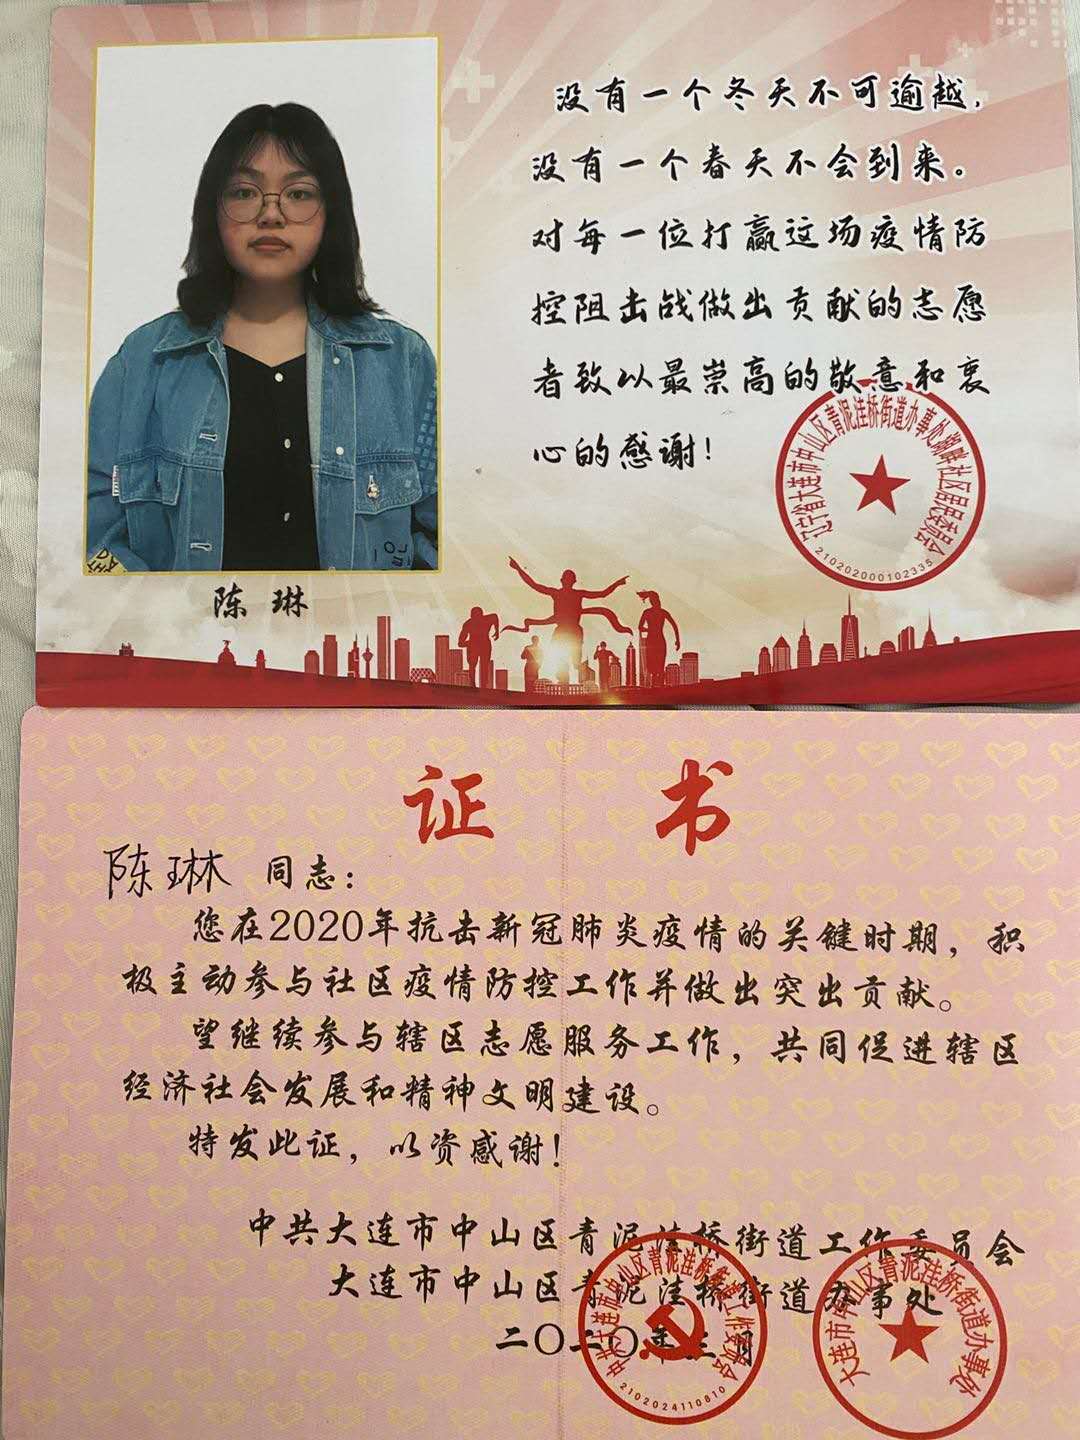 没有一个冬天不可逾越，
没有一个春天不会到来。
对每一位打赢这场疫情防
控阻击战做出贡献的志愿
者致以最崇高的敬意和衷
心的感谢！
辽宁省大连市中山区青泥洼桥街道办事处湖畔社区居民委员会
210202000102335
陈琳
证书
陈琳 同志：
您在2020年抗击新冠肺炎疫情的关键时期，积
极主动参与社区疫情防控工作并做出突出贡献。
望继续参与辖区志愿服务工作，共同促进辖区
经济社会发展和精神文明建设。
特发此证，以资感谢！
中共大连市中山区青泥洼桥街道工作委员会
大连市中山区青泥洼桥街道办事处
二〇二〇年三月
中共大连市中山区青泥洼桥街道工作委员会
2102024110810
大连市中山区青泥洼桥街道办事处